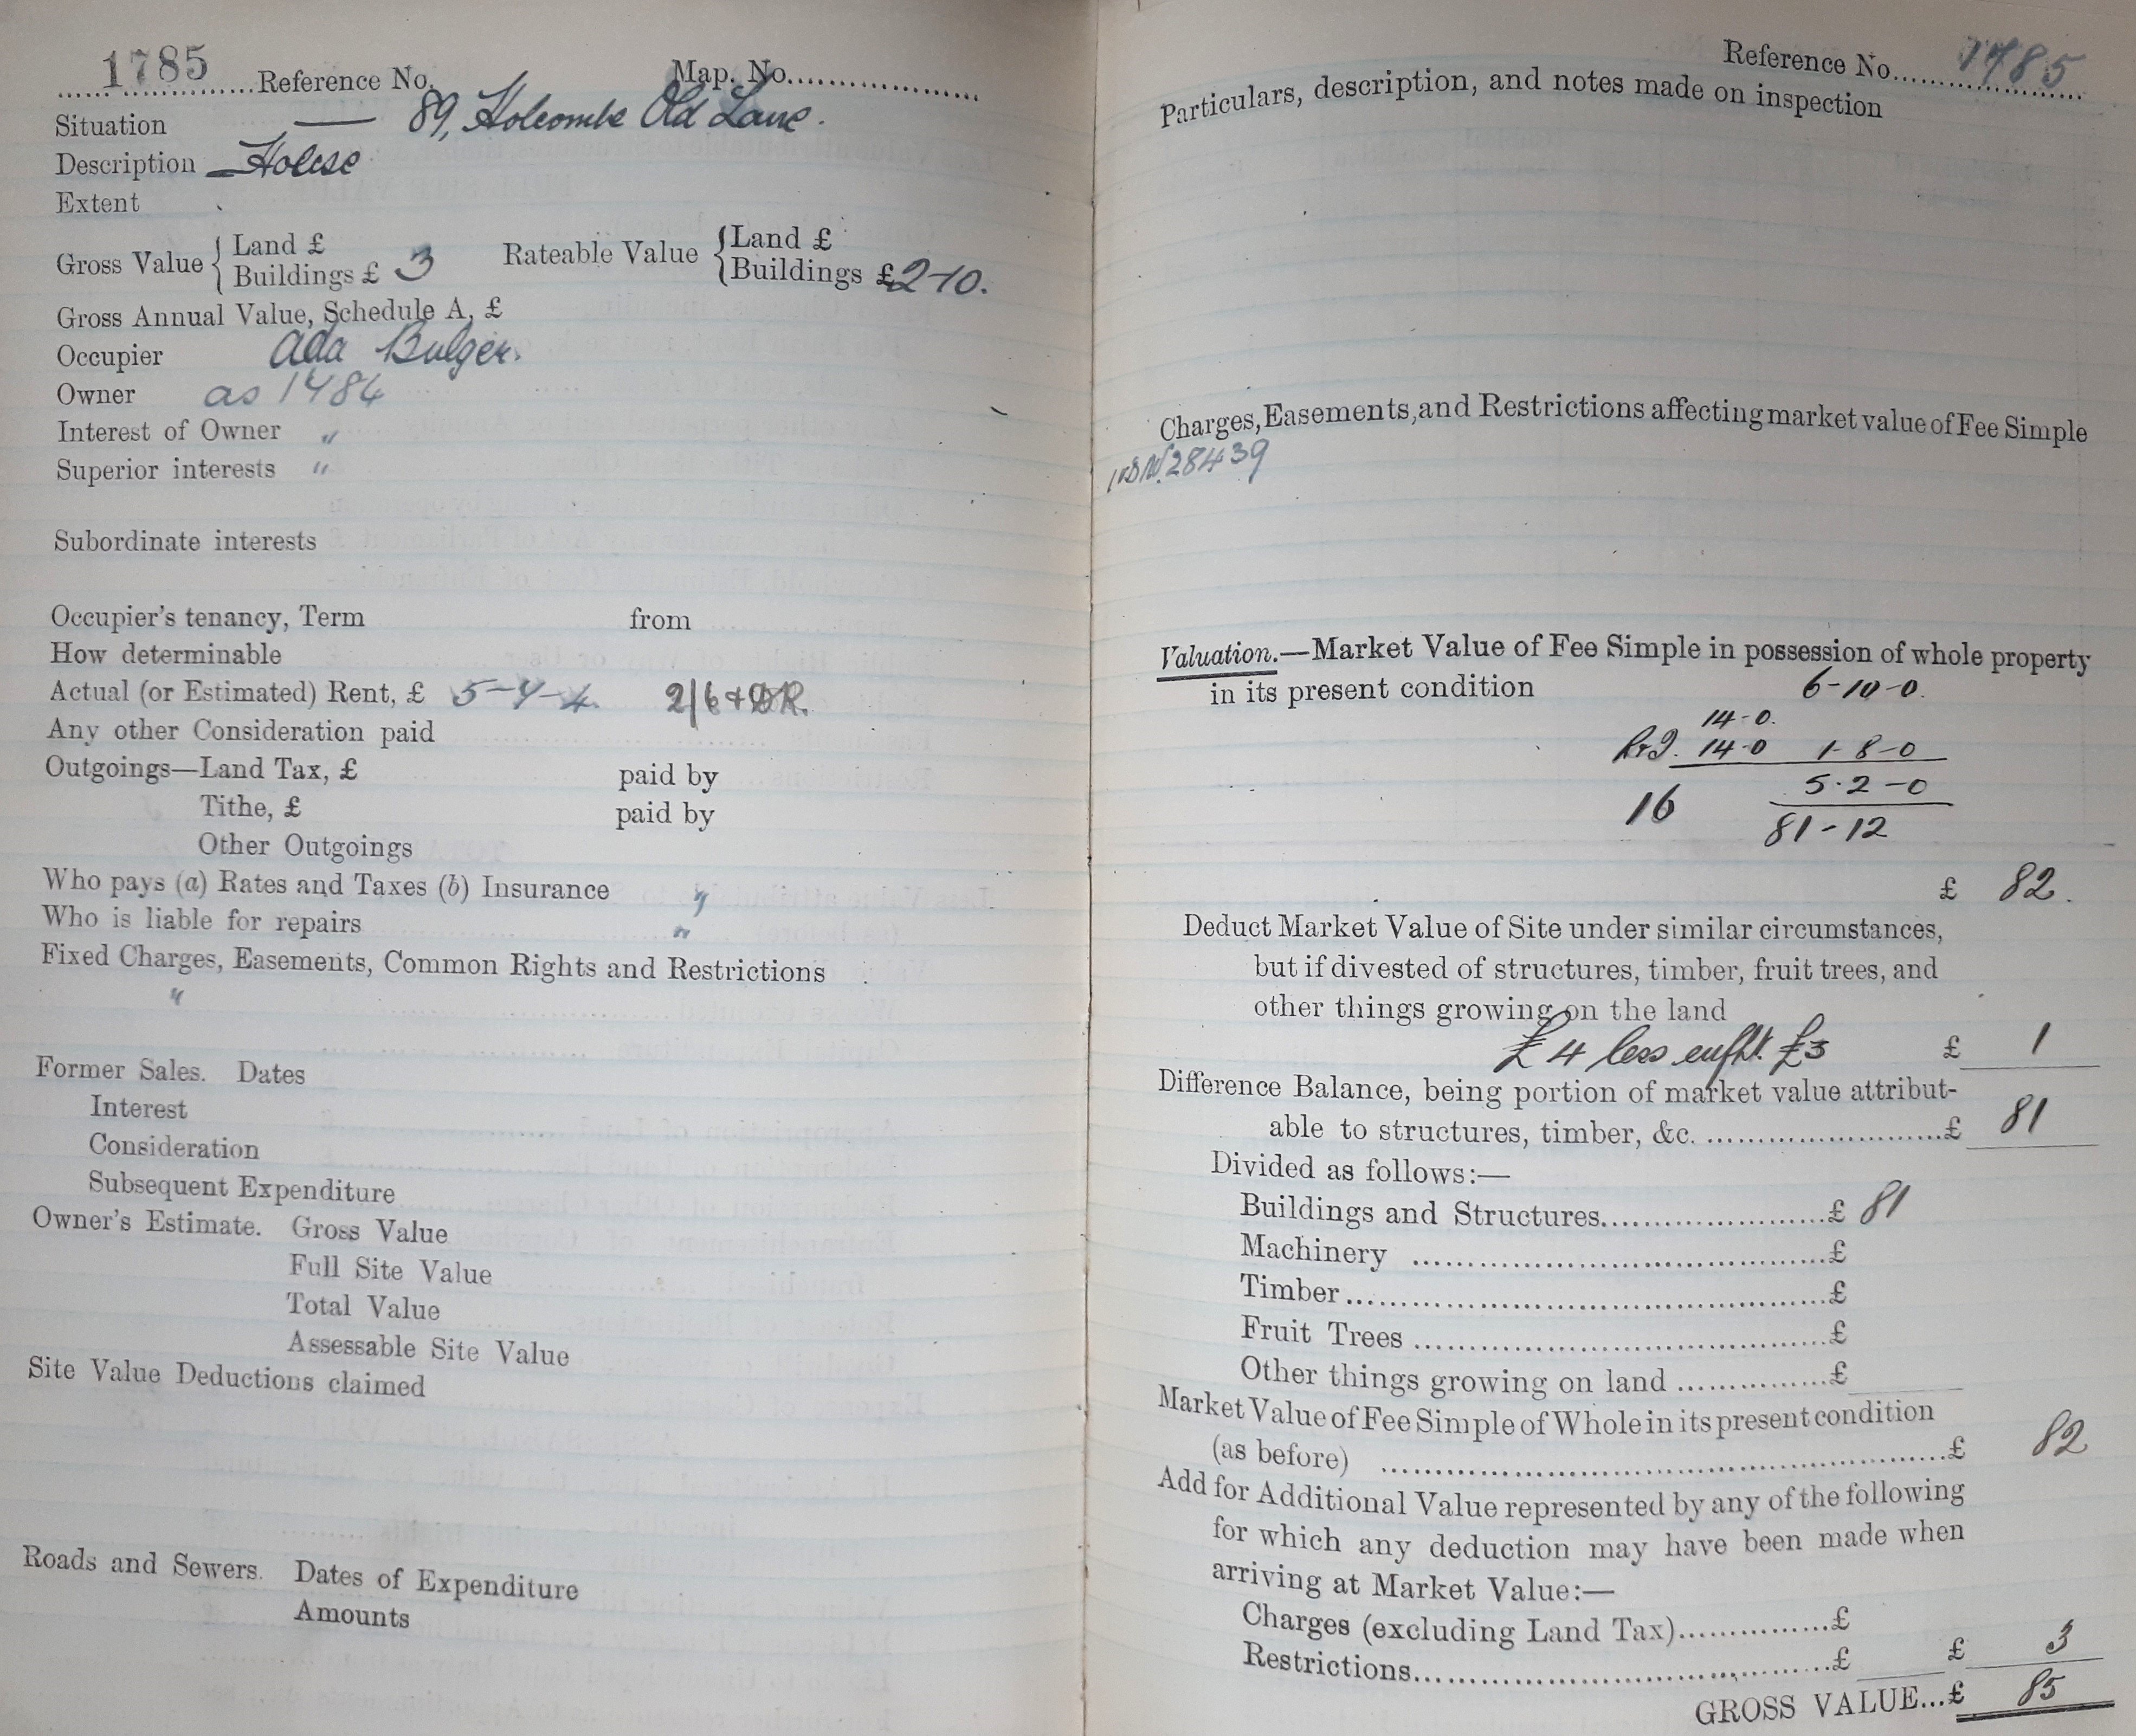 1785 Reference No. Map. No.
Situation — 89, Holcombe Old Lane.
Description — House
Extent
Gross Value { Land £
Buildings £ 3
Rateable Value { Land £
Buildings £ 2-10.
Gross Annual Value, Schedule A, £
Occupier Ada Bulger.
Owner as 1784
Interest of Owner "
Superior interests "
Subordinate interests
Occupier's tenancy, Term from
How determinable
Actual (or Estimated) Rent, £ 5-4-4. 2/6
Any other Consideration paid
Outgoings—Land Tax, £ paid by
Tithe, £ paid by
Other Outgoings
Who pays (a) Rates and Taxes (b) Insurance "
Who is liable for repairs "
Fixed Charges, Easements, Common Rights and Restrictions
"
Former Sales. Dates
Interest
Consideration
Subsequent Expenditure
Owner's Estimate. Gross Value
Full Site Value
Total Value
Assessable Site Value
Site Value Deductions claimed
Roads and Sewers. Dates of Expenditure
Amounts
Reference No. 1785
Particulars, description, and notes made on inspection
Charges, Easements, and Restrictions affecting market value of Fee Simple
28439
Valuation.—Market Value of Fee Simple in possession of whole property
in its present condition 6-10-0.
14-0.
14-0 1-8-0
5.2-0
16
81-12
£ 82.
Deduct Market Value of Site under similar circumstances,
but if divested of structures, timber, fruit trees, and
other things growing on the land
£4 less £3 £ 1
Difference Balance, being portion of market value attribut-
able to structures, timber, &c. £ 81
Divided as follows:—
Buildings and Structures £ 81
Machinery £
Timber £
Fruit Trees £
Other things growing on land £
Market Value of Fee Simple of Whole in its present condition
(as before) £ 82
Add for Additional Value represented by any of the following
for which any deduction may have been made when
arriving at Market Value:—
Charges (excluding Land Tax) £
Restrictions £ £ 3
GROSS VALUE...£ 85